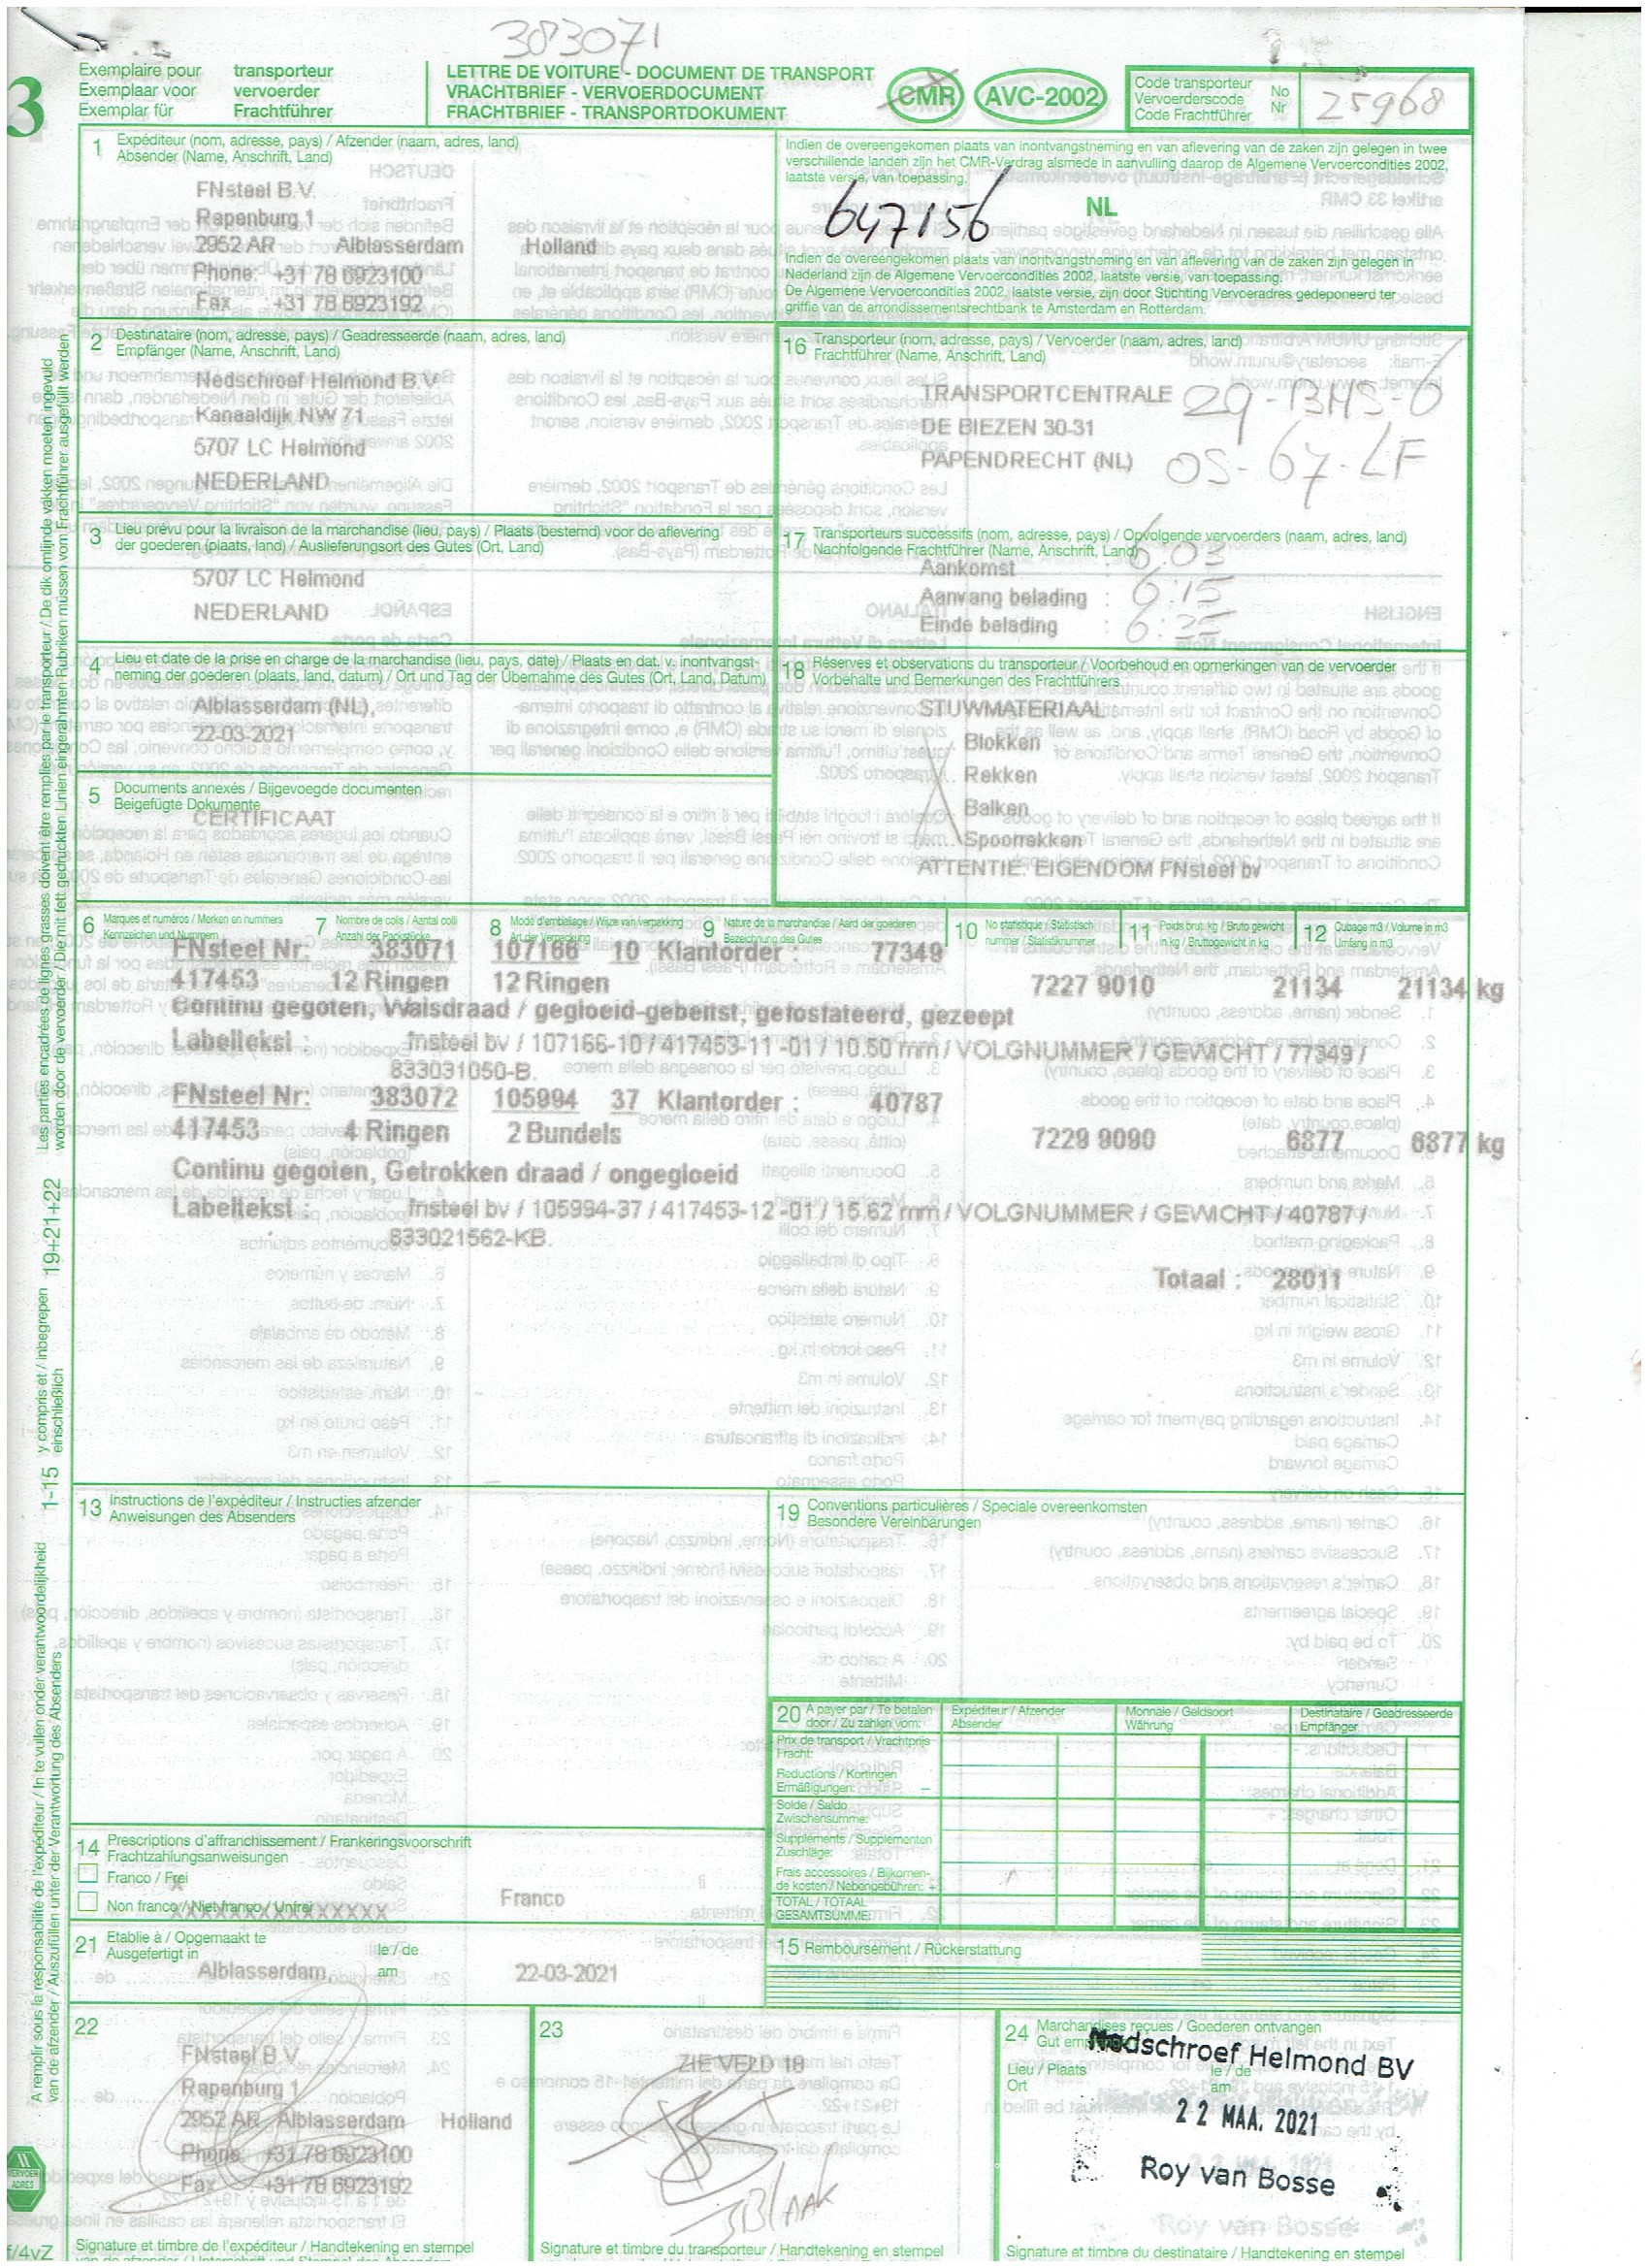 383071
3
Exemplaire pour transporteur
Exemplaar voor vervoerder
Exemplar für Frachtführer
LETTRE DE VOITURE - DOCUMENT DE TRANSPORT
VRACHTBRIEF - VERVOERDOCUMENT
FRACHTBRIEF - TRANSPORTDOKUMENT
CMR
AVC-2002
Code transporteur
Vervoerderscode
Code Frachtführer
No
Nr
25968
1 Expéditeur (nom, adresse, pays) / Afzender (naam, adres, land)
Absender (Name, Anschrift, Land)
FNsteel B.V.
Rapenburg 1
2952 AR Alblasserdam Holland
Phone: +31 78 6923100
Fax : +31 78 6923192
Indien de overeengekomen plaats van inontvangstneming en van aflevering van de zaken zijn gelegen in twee
verschillende landen zijn het CMR-Verdrag alsmede in aanvulling daarop de Algemene Vervoercondities 2002,
laatste versie, van toepassing.
647156
NL
Indien de overeengekomen plaats van inontvangstneming en van aflevering van de zaken zijn gelegen in
Nederland zijn de Algemene Vervoercondities 2002, laatste versie, van toepassing.
De Algemene Vervoercondities 2002, laatste versie, zijn door Stichting Vervoeradres gedeponeerd ter
griffie van de arrondissementsrechtbank te Amsterdam en Rotterdam.
2 Destinataire (nom, adresse, pays) / Geadresseerde (naam, adres, land)
Empfänger (Name, Anschrift, Land)
Nedschroef Helmond B.V.
Kanaaldijk NW 71
5707 LC Helmond
NEDERLAND
16 Transporteur (nom, adresse, pays) / Vervoerder (naam, adres, land)
Frachtführer (Name, Anschrift, Land)
TRANSPORTCENTRALE
DE BIEZEN 30-31
PAPENDRECHT (NL)
OS-67-LF
3 Lieu prévu pour la livraison de la marchandise (lieu, pays) / Plaats (bestemd) voor de aflevering
der goederen (plaats, land) / Auslieferungsort des Gutes (Ort, Land)
5707 LC Helmond
NEDERLAND
17 Transporteurs successifs (nom, adresse, pays) / Opvolgende vervoerders (naam, adres, land)
Nachfolgende Frachtführer (Name, Anschrift, Land)
Aankomst : 6:03
Aanvang belading : 6:15
Einde belading :
4 Lieu et date de la prise en charge de la marchandise (lieu, pays, date) / Plaats en dat. v. inontvangst-
neming der goederen (plaats, land, datum) / Ort und Tag der Übernahme des Gutes (Ort, Land, Datum)
Alblasserdam (NL),
22-03-2021
18 Réserves et observations du transporteur / Voorbehoud en opmerkingen van de vervoerder
Vorbehalte und Bemerkungen des Frachtführers
STUWMATERIAAL
Blokken
Rekken
Balken
Spoorrekken
ATTENTIE: EIGENDOM FNsteel bv
5 Documents annexés / Bijgevoegde documenten
Beigefügte Dokumente
CERTIFICAAT
6 Marques et numéros / Merken en nummers
Kennzeichen und Nummern
7 Nombre de colis / Aantal colli
Anzahl der Packstücke
8 Mode d'emballage / Wijze van verpakking
Art der Verpackung
9 Nature de la marchandise / Aard der goederen
Bezeichnung des Gutes
10 No statistique / Statistisch
nummer / Statistiknummer
11 Poids brut. kg / Bruto gewicht
in kg / Bruttogewicht in kg
12 Cubage m3 / Volume in m3
Umfang in m3
FNsteel Nr: 383071 107166 10 Klantorder : 77349
417453 12 Ringen 12 Ringen 7227 9010 21134 21134 kg
Continu gegoten, Walsdraad / gegloeid-gebeitst, gefosfateerd, gezeept
Labeltekst : fnsteel bv / 107166-10 / 417453-11 -01 / 10.50 mm / VOLGNUMMER / GEWICHT / 77349 /
833031050-B.
FNsteel Nr: 383072 105994 37 Klantorder : 40787
417453 4 Ringen 2 Bundels 7229 9090 6877 6877 kg
Continu gegoten, Getrokken draad / ongegloeid
Labeltekst : fnsteel bv / 105994-37 / 417453-12 -01 / 15.62 mm / VOLGNUMMER / GEWICHT / 40787 /
833021562-KB.
Totaal : 28011
13 Instructions de l'expéditeur / Instructies afzender
Anweisungen des Absenders
19 Conventions particulières / Speciale overeenkomsten
Besondere Vereinbarungen
20 A payer par / Te betalen
door / Zu zahlen vom:
Expéditeur / Afzender
Absender
Monnaie / Geldsoort
Währung
Destinataire / Geadresseerde
Empfänger
Prix de transport / Vrachtprijs
Fracht:
Reductions / Kortingen
Ermäßigungen: -
Solde / Saldo
Zwischensumme:
Suppléments / Supplementen
Zuschläge:
Frais accessoires / Bijkomen-
de kosten / Nebengebühren: +
TOTAL / TOTAAL
GESAMTSUMME:
14 Prescriptions d'affranchissement / Frankeringsvoorschrift
Frachtzahlungsanweisungen
Franco / Frei
Non franco / Niet franco / Unfrei
XXXXXXXXXXXXXXX
Franco
21 Etablie à / Opgemaakt te
Ausgefertigt in
le / de
am
Alblasserdam, 22-03-2021
15 Remboursement / Rückerstattung
22
FNsteel B.V.
Rapenburg 1
2952 AR Alblasserdam Holland
Phone: +31 78 6923100
Fax : +31 78 6923192
Signature et timbre de l'expéditeur / Handtekening en stempel
23
ZIE VELD 18
Signature et timbre du transporteur / Handtekening en stempel
24 Marchandises reçues / Goederen ontvangen
Gut empfangen
Lieu / Plaats
Ort
le / de
am
Nedschroef Helmond BV
22 MAA. 2021
Roy van Bosse
Signature et timbre du destinataire / Handtekening en stempel
Les parties encadrées de lignes grasses doivent être remplies par le transporteur / De dik omlijnde vakken moeten ingevuld
worden door de vervoerder / Die mit fett gedruckten Linien eingerahmten Rubriken müssen vom Frachtführer ausgefüllt werden
A remplir sous la responsabilité de l'expéditeur / In te vullen onder verantwoordelijkheid
van de afzender / Auszufüllen unter der Verantwortung des Absenders
1-15 y compris et / inbegrepen
einschließlich
19+21+22
VERVOER
ADRES
f/4vZ